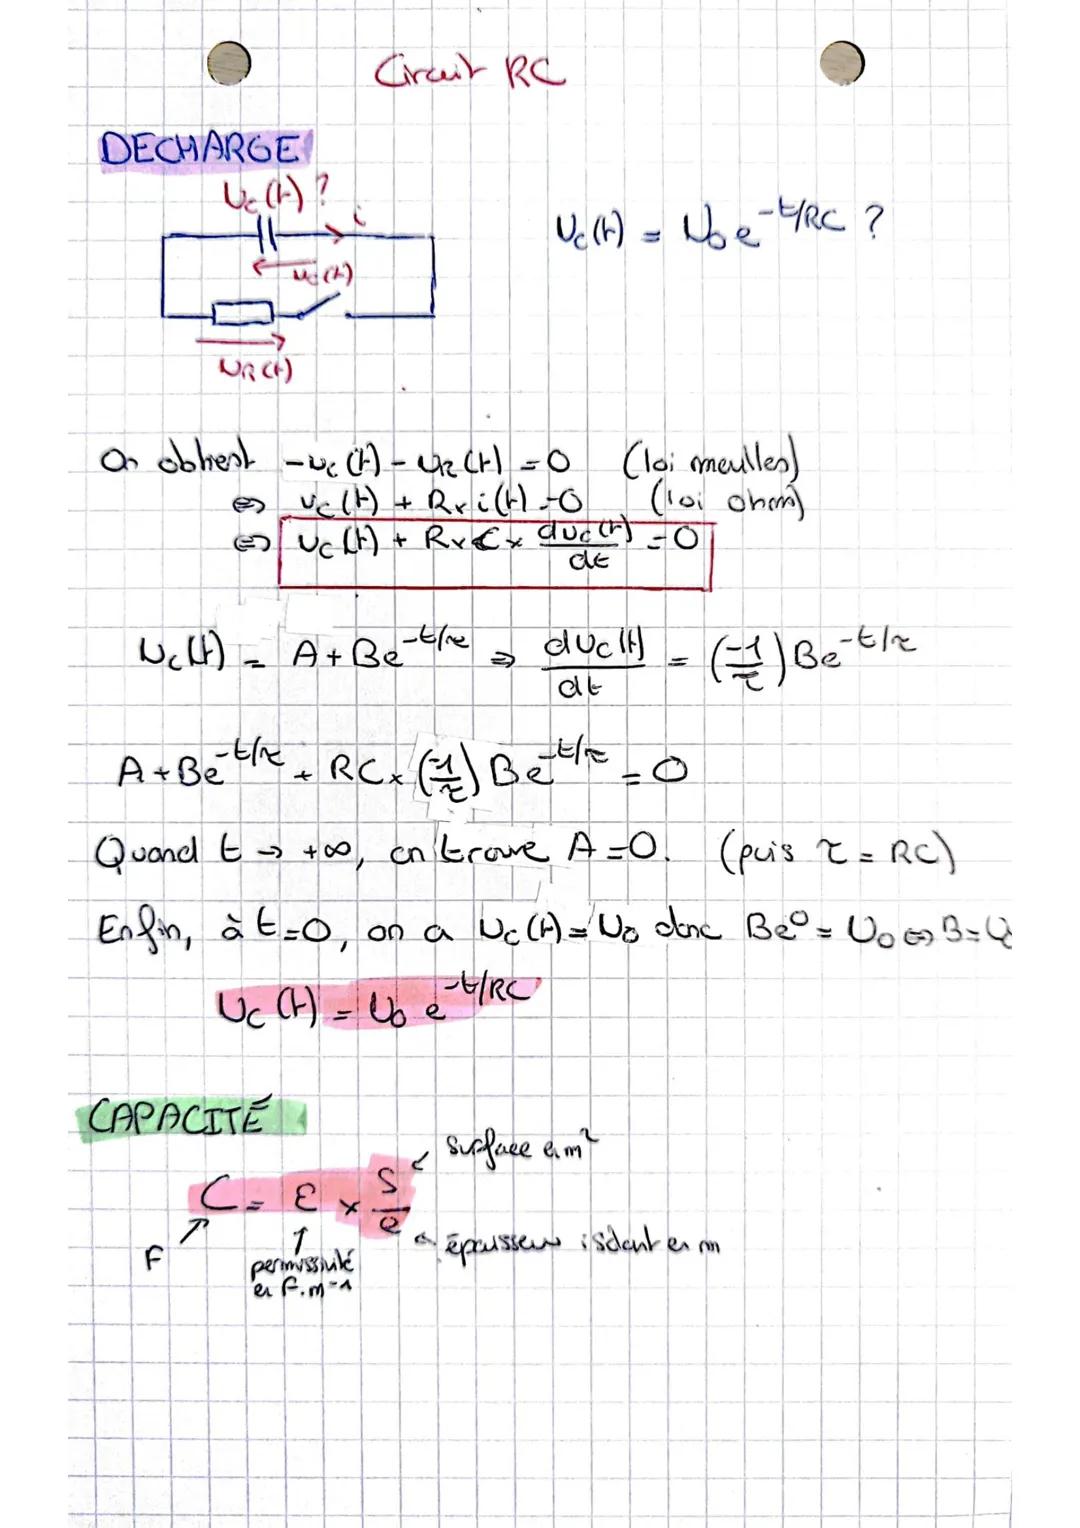 Circuit RC
DECHARGE
Uc(t) ?
i
uc(t)
UR(t)
Uc(t) = U₀ e^-t/RC ?
On obtient -uc(t) - UR(t) = 0 (loi meulles)
⇔ uc(t) + R × i(t) = 0 (loi ohm)
⇔ uc(t) + R × C × duc(t)/dt = 0
Uc(t) = A + Be^-t/τ ⇒ duc(t)/dt = (-1/τ) Be^-t/τ
A + Be^-t/τ + RC × (-1/τ) Be^-t/τ = 0
Quand t → +∞, on trouve A = 0. (puis τ = RC)
Enfin, à t = 0, on a Uc(t) = U₀ donc Be⁰ = U₀ ⇔ B = U
Uc(t) = U₀ e^-t/RC
CAPACITÉ
C = ε × S/e
surface en m²
épaisseur isolant en m
F
permissivité
en F.m-1